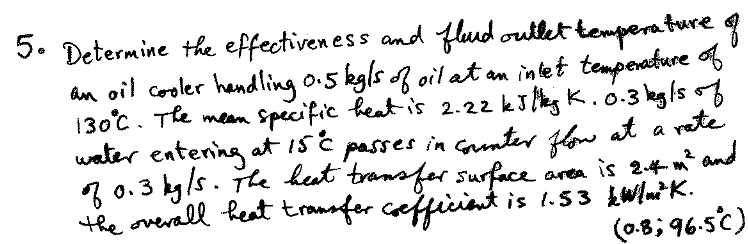 5. Determine the effectiveness and fluid outlet temperature of
an oil cooler handling 0.5 kg/s of oil at an inlet temperature of
130°C. The mean specific heat is 2.22 kJ/kg K. 0.3 kg/s of
water entering at 15°C passes in counter flow at a rate
of 0.3 kg/s. The heat transfer surface area is 2.4 m² and
the overall heat transfer coefficient is 1.53 kW/m²K.
(0.8; 96.5°C)